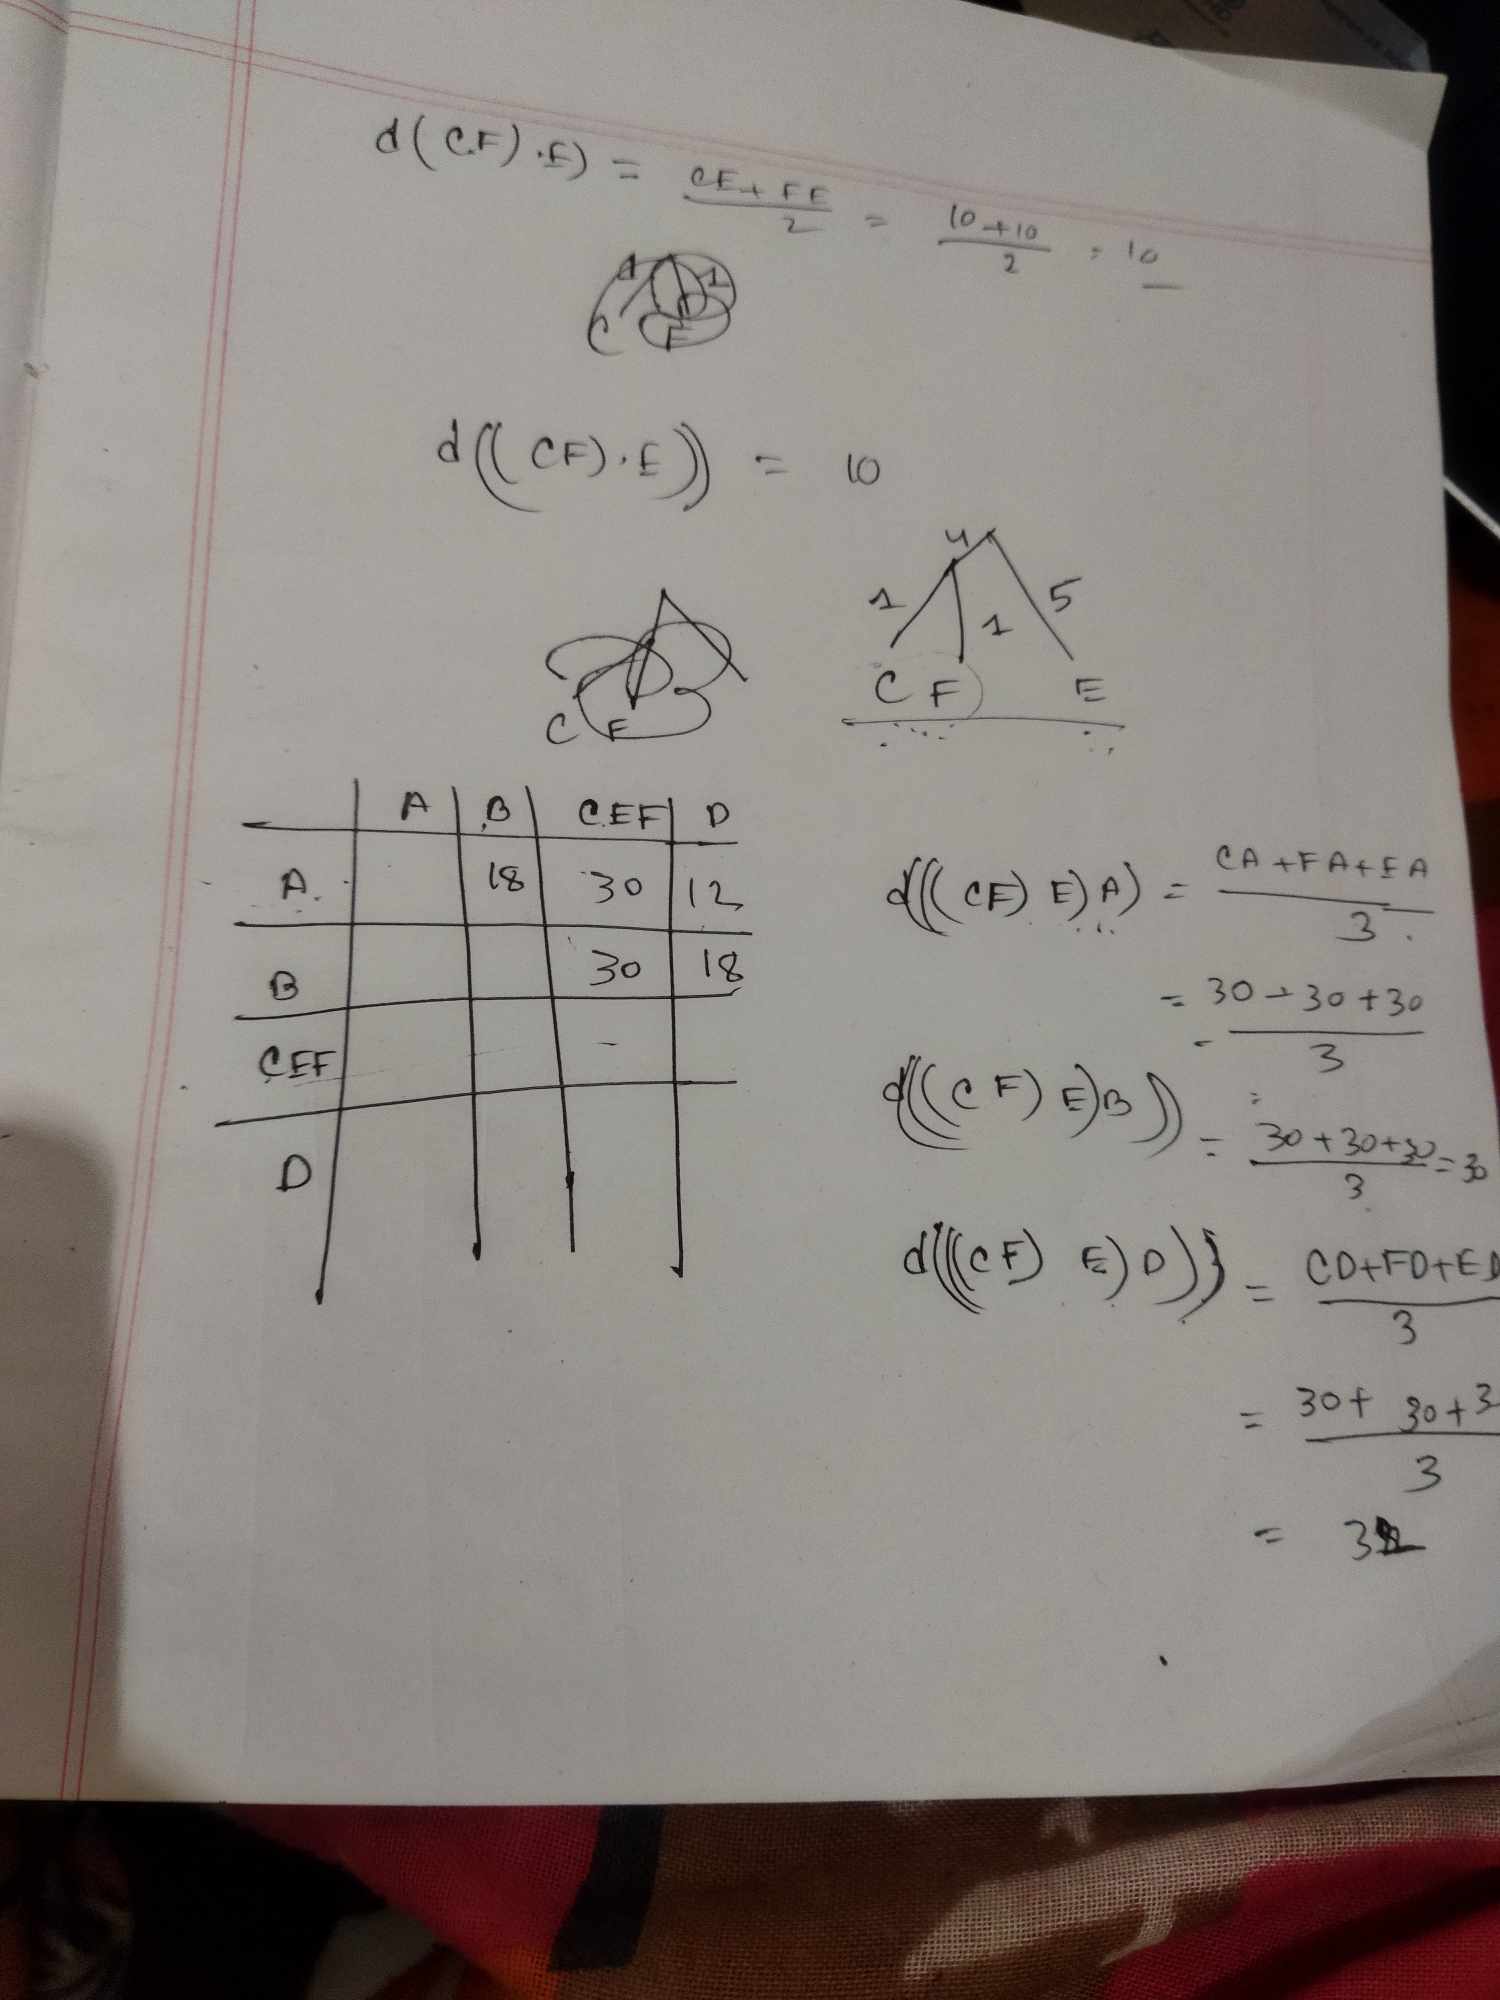 d(CF).E) = CE+FE / 2 = 10+10 / 2 = 10
1 1
C F
d((CF).E)) = 10
4
1 1 5
C F E
C F
A B CEF D
A. 18 30 12
B 30 18
CEF -
D
d((CF) E) A) = CA+FA+EA / 3
= 30+30+30 / 3
d((CF) E) B)) = 30+30+30 / 3 = 30
d((CF) E) D)} = CD+FD+ED / 3
= 30+ 30+3 / 3
= 3